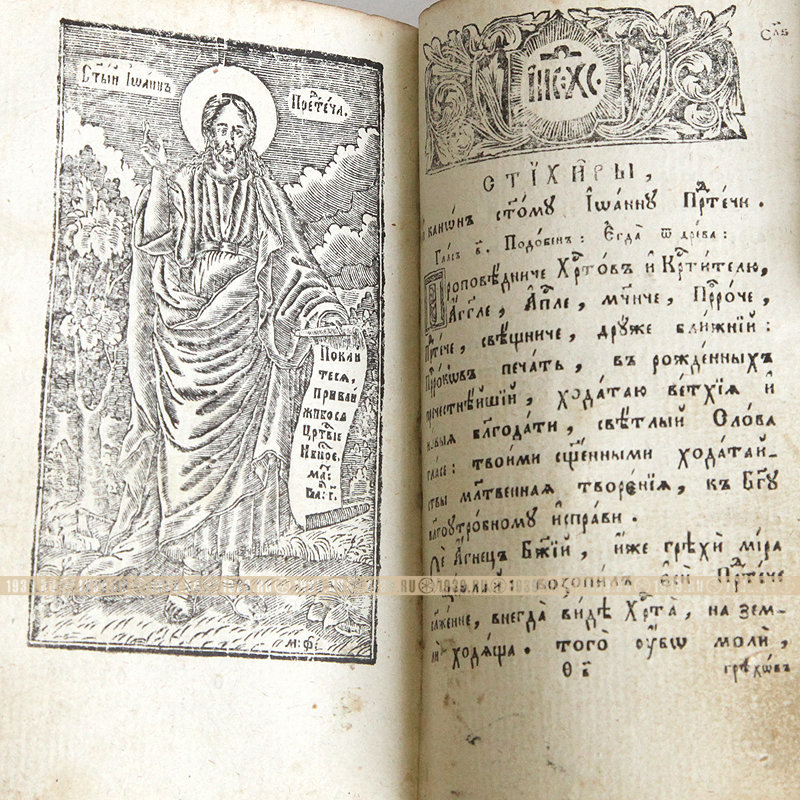 Ст҃ый Іѡаннъ
Прⷣтеча.
Покай
теся,
Приближ
жибося
Црⷭ҇твіе
Нбⷭ҇ное.
Ма:
гл҃а: г҃.
м:ф:
І҆И҃С ХС
СТІХИ̑РЫ,
И҆ канѡ́нъ ст҃о́мꙋ І҆ѡа́ннꙋ Прⷣте́чи.
Гла́съ в҃. Подо́бенъ: Є҆гда̀ ѿ дре́ва:
Проповѣ́дниче Хрⷭ҇то́въ и҆ Крⷭ҇ти́телю,
А҆́гг҃ле, А҆пⷭ҇ле, мч҃ниче, Прⷪ҇ро́че,
Прⷣте́че, свѣ́щниче, дрꙋ́же бли́жній:
Прⷪ҇ро́кѡвъ печа́ть, въ рожде́нныхъ
пречестнѣ́йшій, хода́таю ве́тхїѧ и҆
но́выѧ бл҃года́ти, свѣ́тлый Сло́ва
гла́се: твои́ми сщ҃е́нными хода́тай-
ствы мл҃твеннаѧ творе́нїѧ, къ Бг҃ꙋ
бл҃гоꙋтро́бномꙋ и҆спра́ви.
Сѐ А҆́гнецъ Бж҃їй, и҆́же грѣхѝ мі́ра
возопи́лъ є҆сѝ Прⷣте́че
бл҃же́нне, внегда̀ ви́дѣ Хрⷭ҇та̀, на зем-
лѝ ходѧ́ща. того̀ ᲂу҆̀бо молѝ,
Ѳ в҃
грѣхѡ́въ